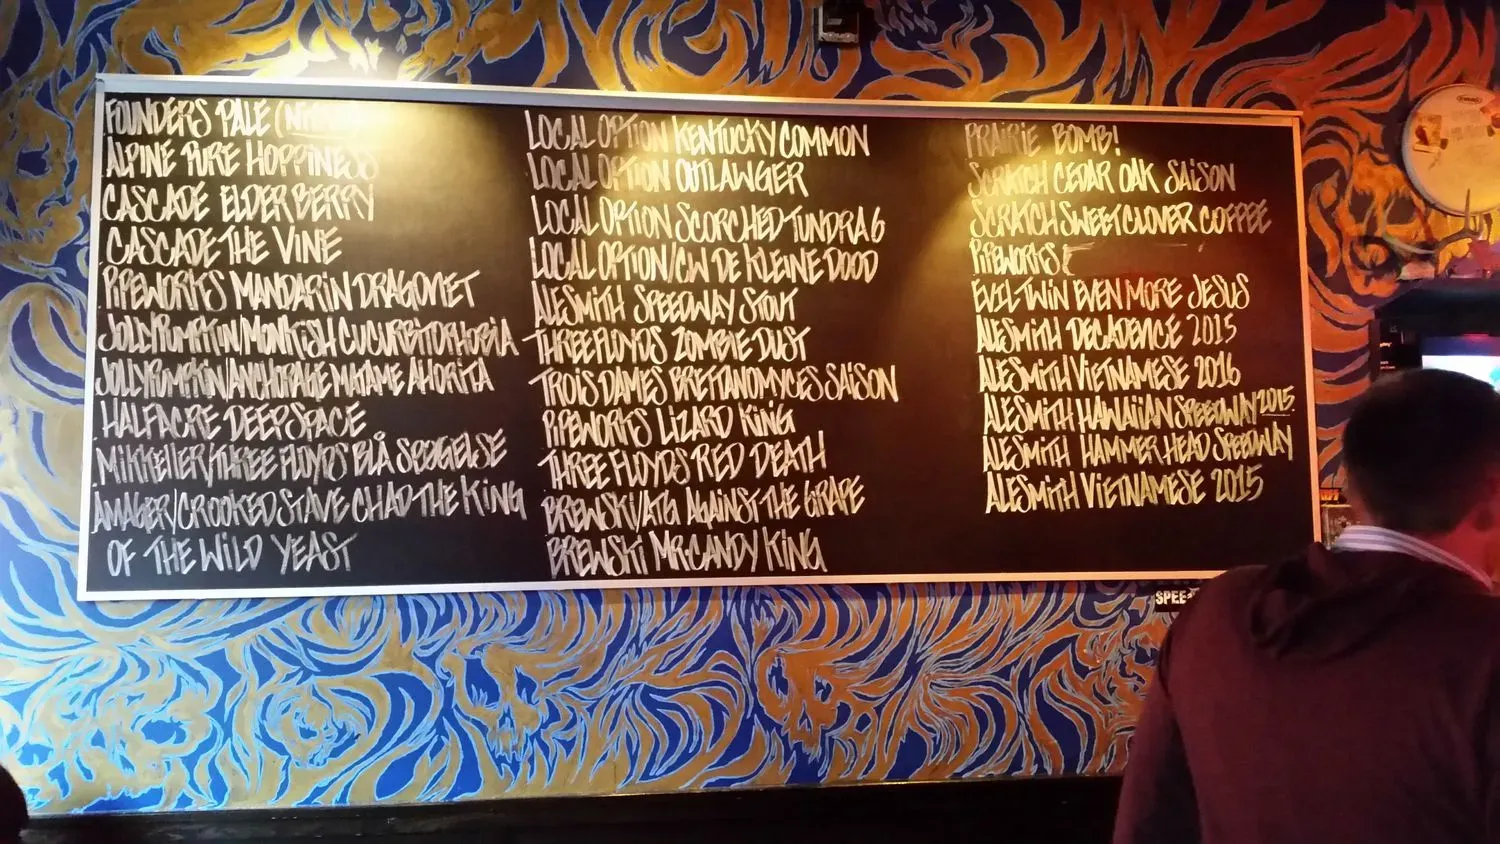 FOUNDERS PALE (NITRO)
ALPINE PURE HOPPINESS
CASCADE ELDERBERRY
CASCADE THE VINE
PIPEWORKS MANDARIN DRAGONET
JOLLY PUMPKIN/MONKISH CUCURBITOPHOBIA
JOLLY PUMPKIN/ANCHORAGE MATAME AHORITA
HALFACRE DEEP SPACE
MIKKELLER/THREE FLOYDS BLÅ SPØGELSE
AMAGER/CROOKED STAVE CHAD THE KING
OF THE WILD YEAST
LOCAL OPTION KENTUCKY COMMON
LOCAL OPTION OUTLAWGER
LOCAL OPTION SCORCHED TUNDRA 6
LOCAL OPTION/CW DE KLEINE DOOD
ALESMITH SPEEDWAY STOUT
THREE FLOYDS ZOMBIE DUST
TROIS DAMES BRETTANOMYCES SAISON
PIPEWORKS LIZARD KING
THREE FLOYDS RED DEATH
BREWSKI/ATG AGAINST THE GRAPE
BREWSKI MR.CANDY KING
PRAIRIE BOMB!
SCRATCH CEDAR OAK SAISON
SCRATCH SWEET CLOVER COFFEE
PIPEWORKS
EVIL TWIN EVEN MORE JESUS
ALESMITH DECADENCE 2015
ALESMITH VIETNAMESE 2016
ALESMITH HAWAIIAN SPEEDWAY 2015
ALESMITH HAMMER HEAD SPEEDWAY
ALESMITH VIETNAMESE 2015